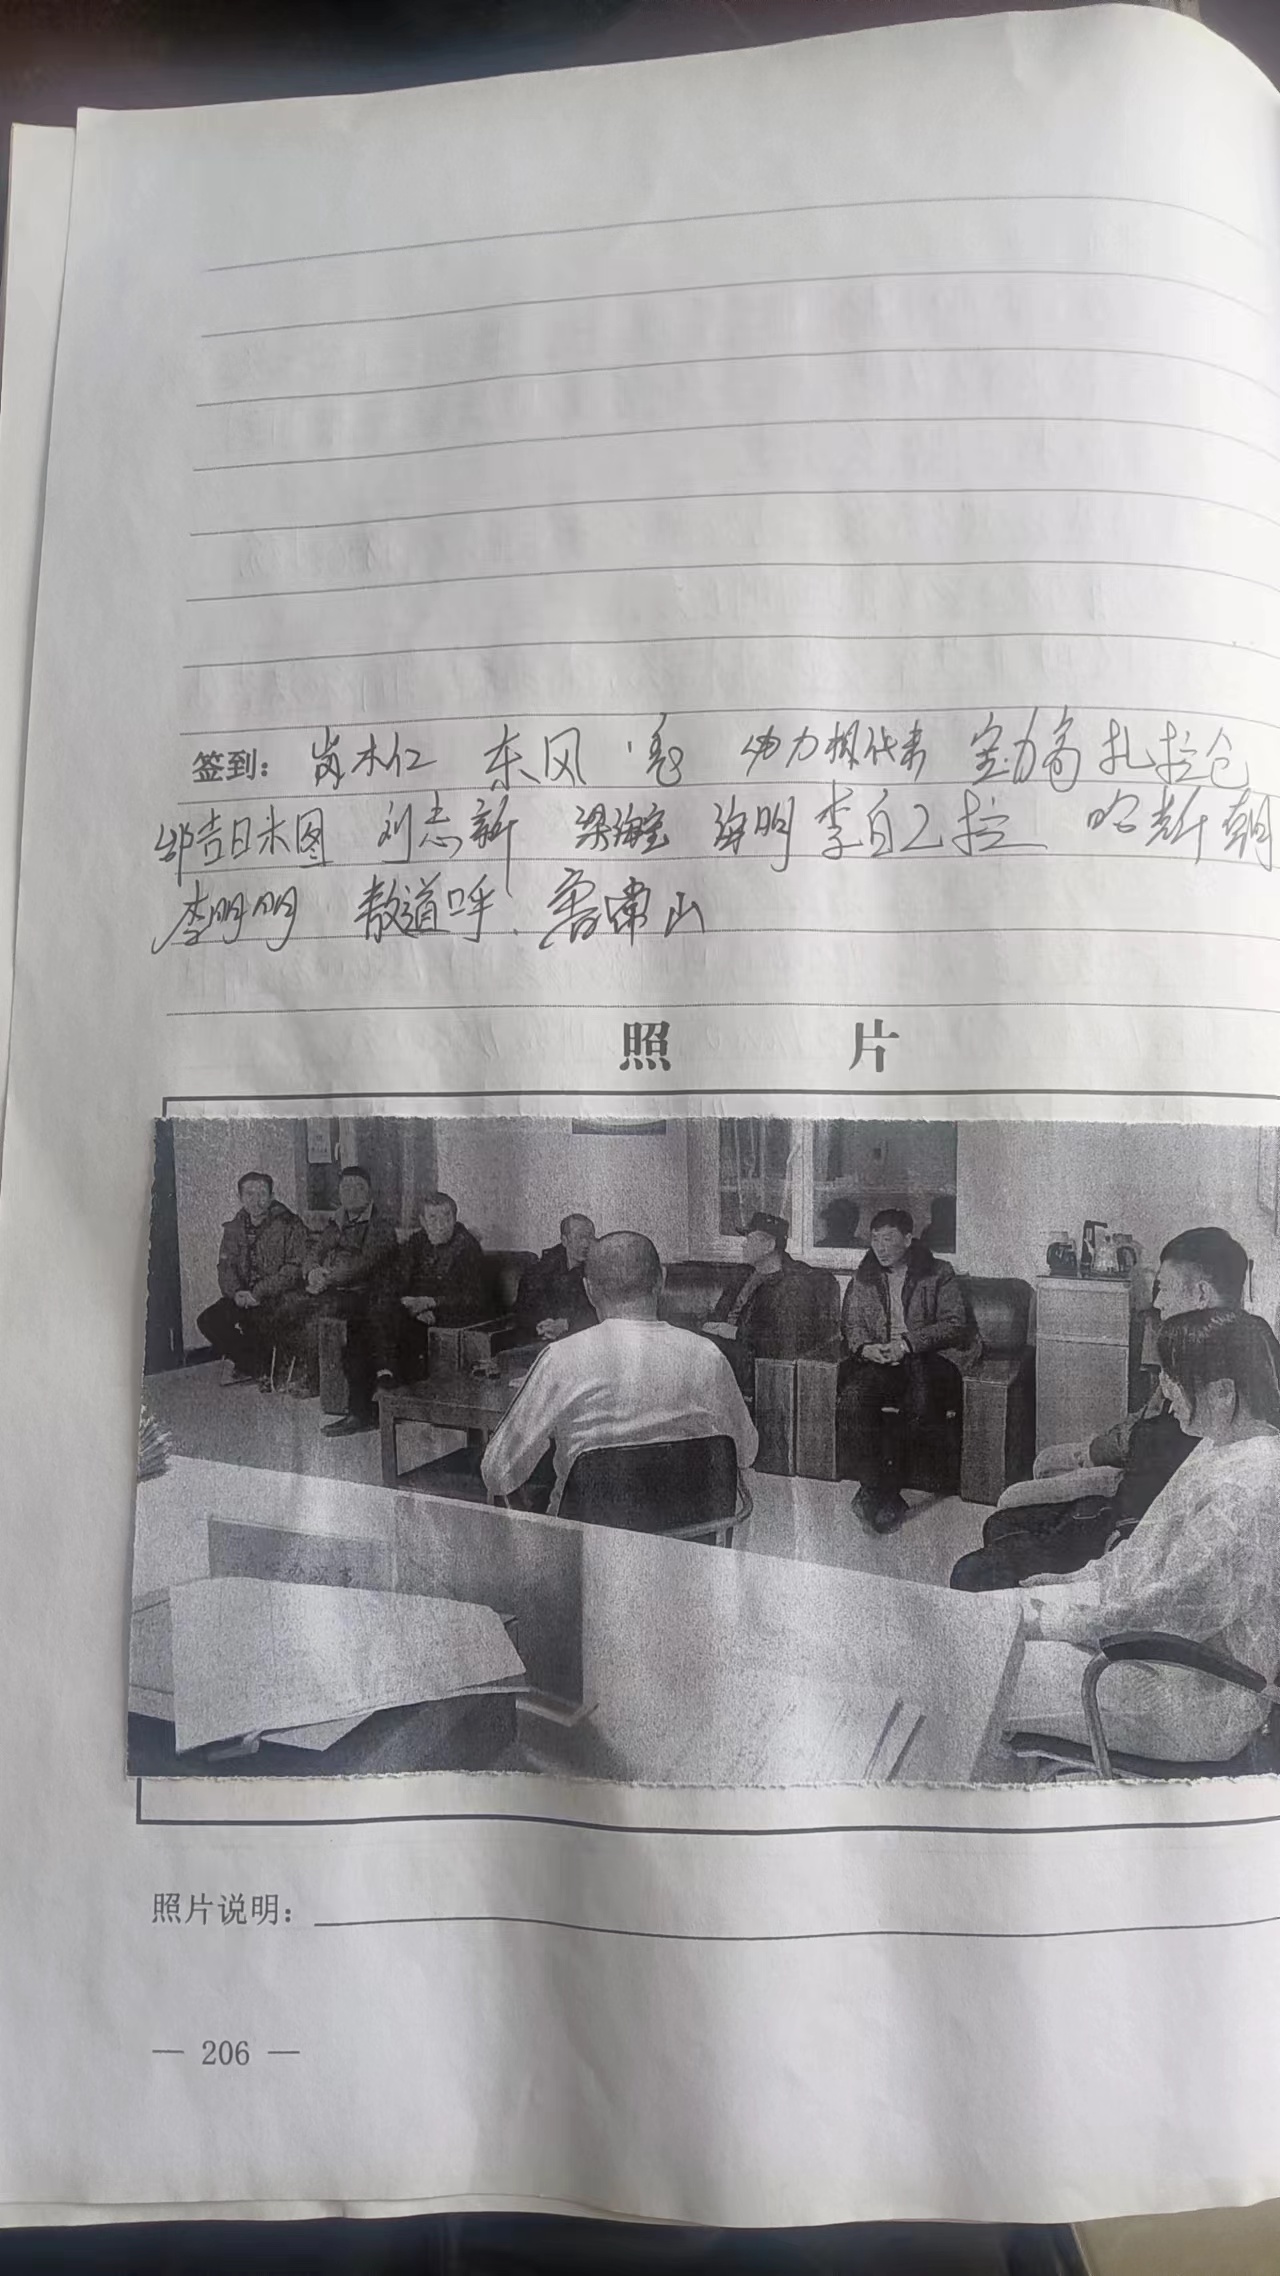 签到: 岗木仁 东风 亮 力 代来 宝力高 扎拉仓
吉日木图 刘志新 梁海宝 海明 李白乙拉 哈斯朝
李明明 敖道呼 常山
照 片
照片说明:
— 206 —